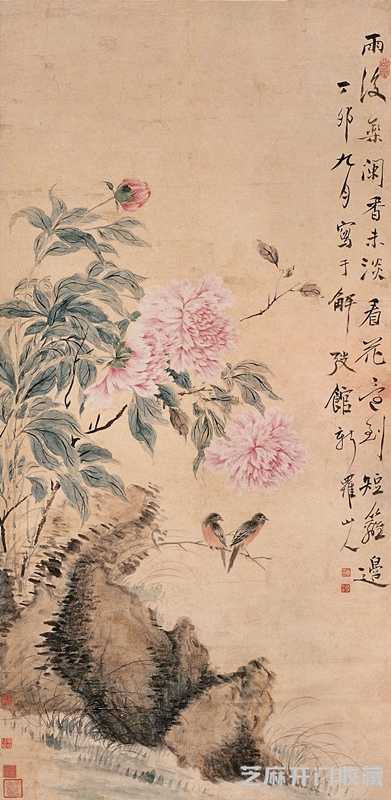 雨後藥闌香未淡看花宜到短籬邊
丁卯九月寫于解弢館新羅山人
芝麻开门收藏